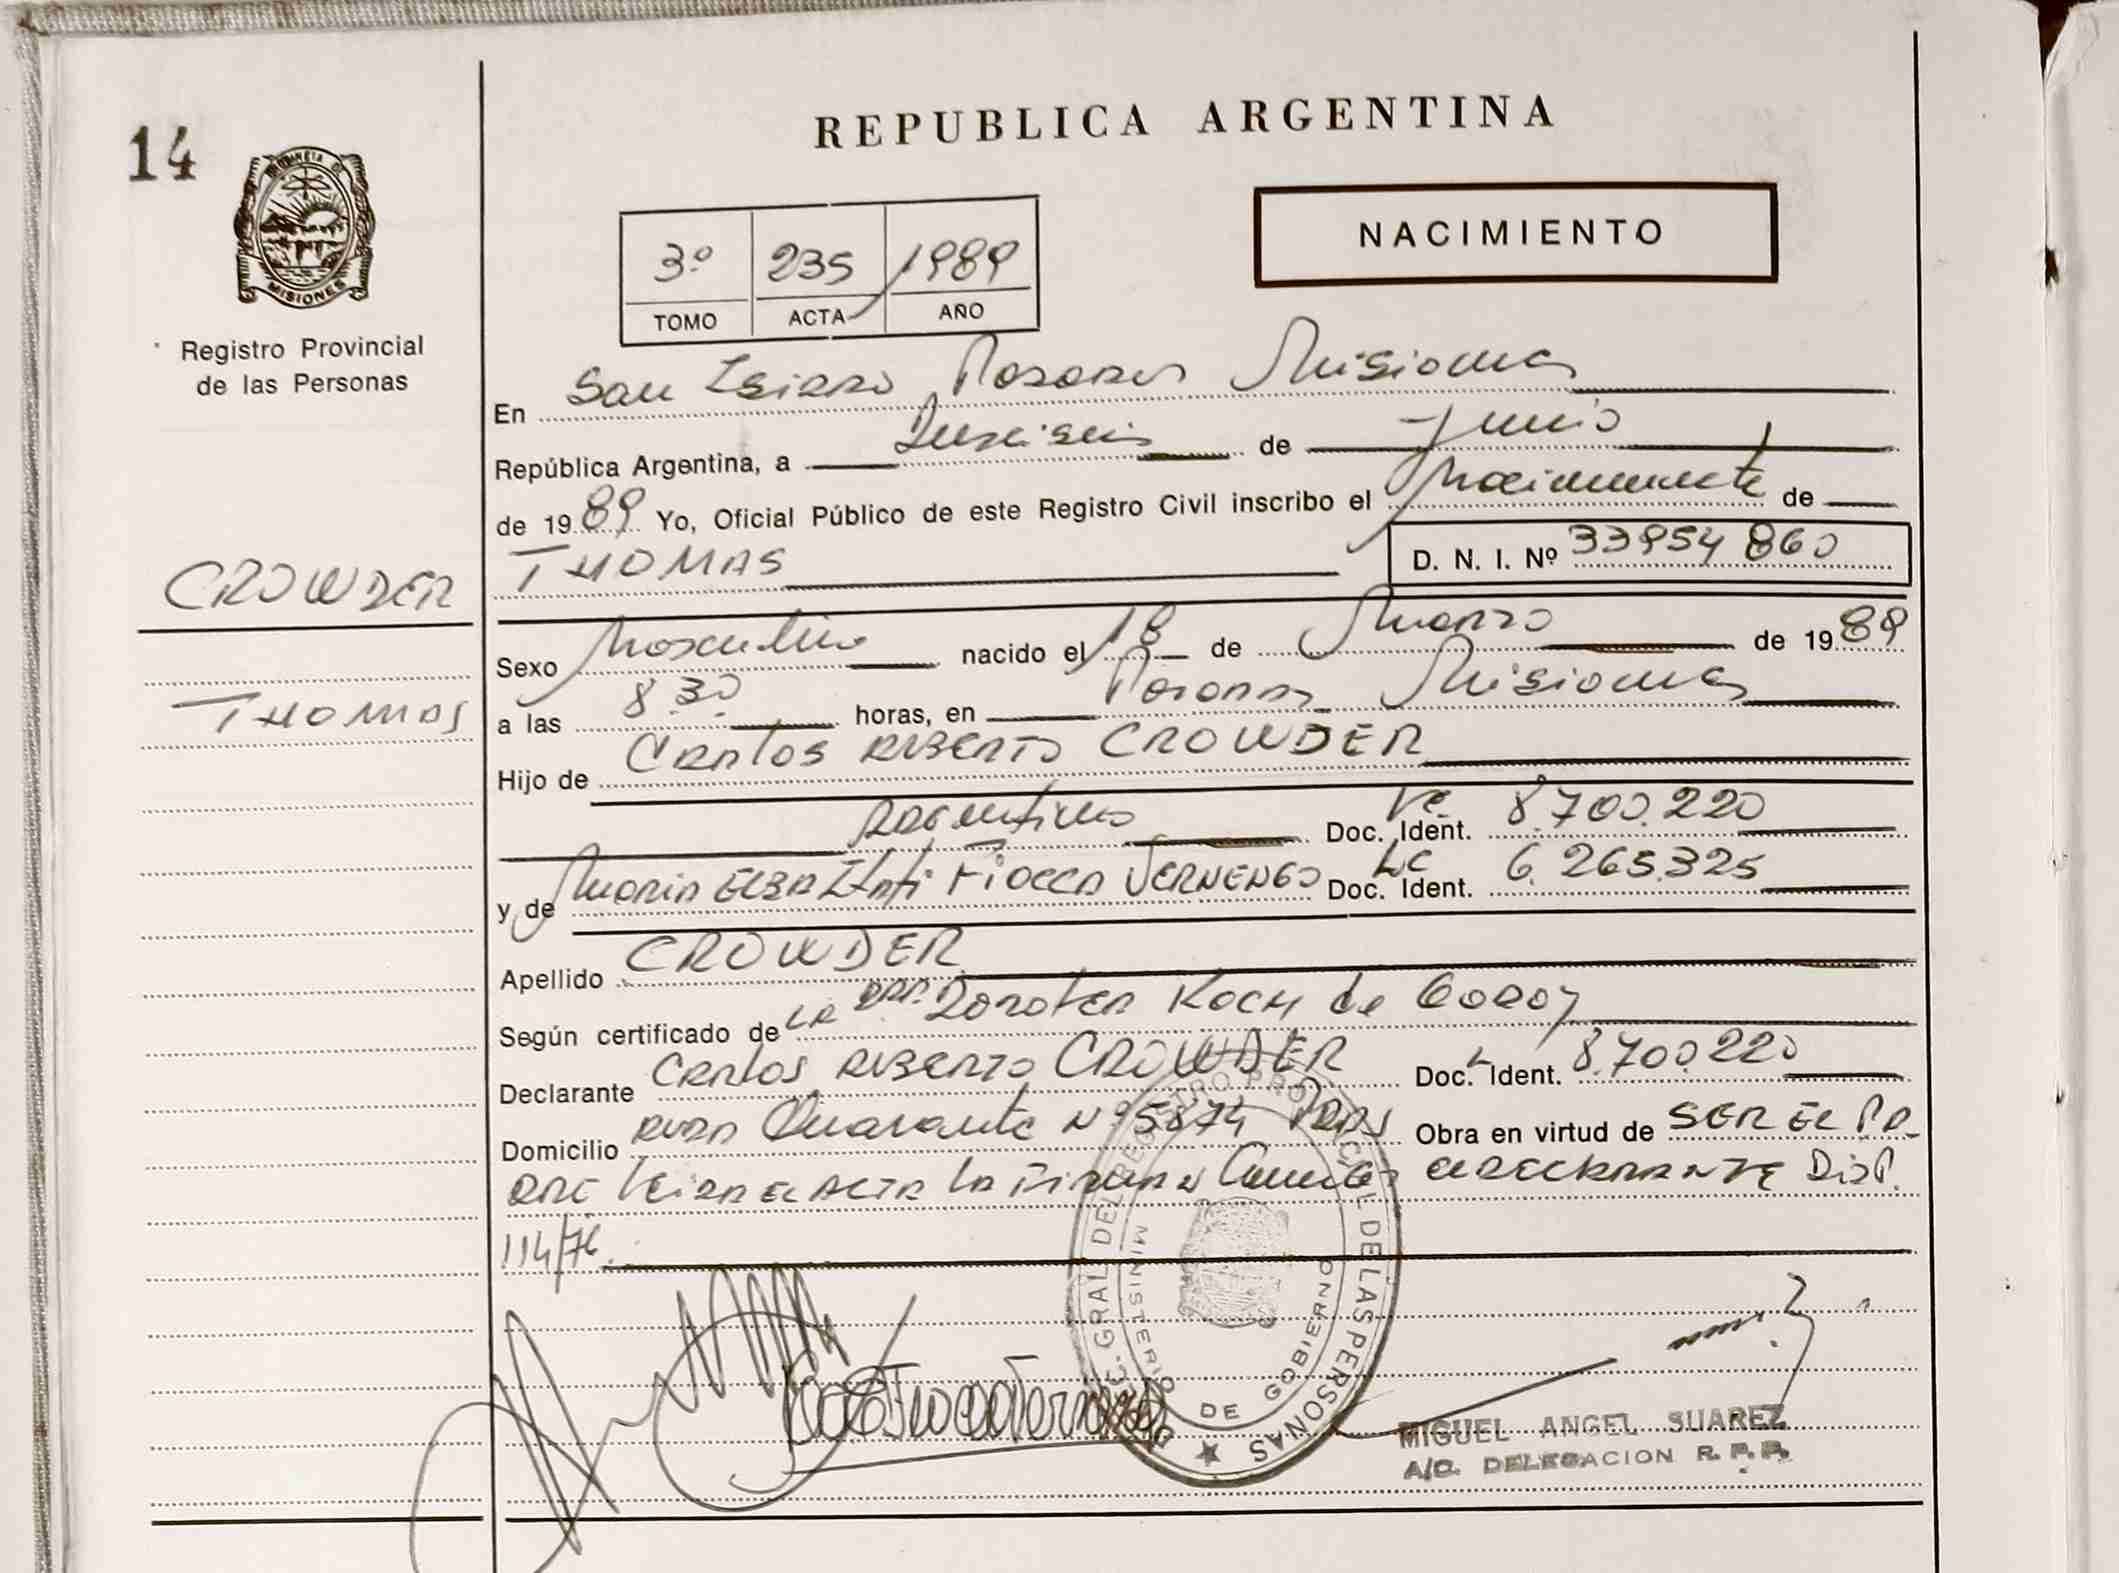 14
REPUBLICA ARGENTINA
NACIMIENTO
3º 235 1989
TOMO ACTA AÑO
MISIONES
Registro Provincial
de las Personas
En San Isidro Posadas Misiones
República Argentina, a Dieciseis de Junio
de 1989 Yo, Oficial Público de este Registro Civil inscribo el Nacimiento de
THOMAS
D. N. I. Nº 33954860
CROWDER
THOMAS
Sexo Masculino nacido el 18 de Marzo de 1989
a las 8.30 horas, en Posadas Misiones
Hijo de Carlos Alberto CROWDER
Argentino Doc. Ident. 8.700.220
y de Maria Elba Itati Fiocca VERNENGO Doc. Ident. LC 6.265.325
Apellido CROWDER
Según certificado de LA DRA. Dorotea Koch de Godoy
Declarante Carlos Alberto CROWDER Doc. Ident. 8.700.220
Domicilio Nº 5874 PDAS Obra en virtud de SER EL PA
DRE Leida EL ACTA La Firman Conmigo el DECLARANTE Disp.
114/76.
DEL REGISTRO PROVINCIAL DE LAS PERSONAS
MINISTERIO DE GOBIERNO
MIGUEL ANGEL SUAREZ
A/C. DELEGACION R. P. P.